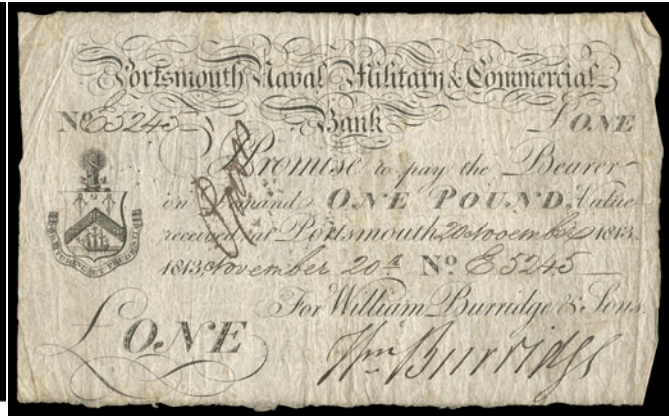 Portsmouth Naval Military & Commercial
Bank
No E5245 £ONE
I Promise to pay the Bearer
on Demand ONE POUND, Value
received at Portsmouth 20 November 1813.
1813, November 20th No E5245
For William Burridge & Sons.
£ONE
Wm Burridge